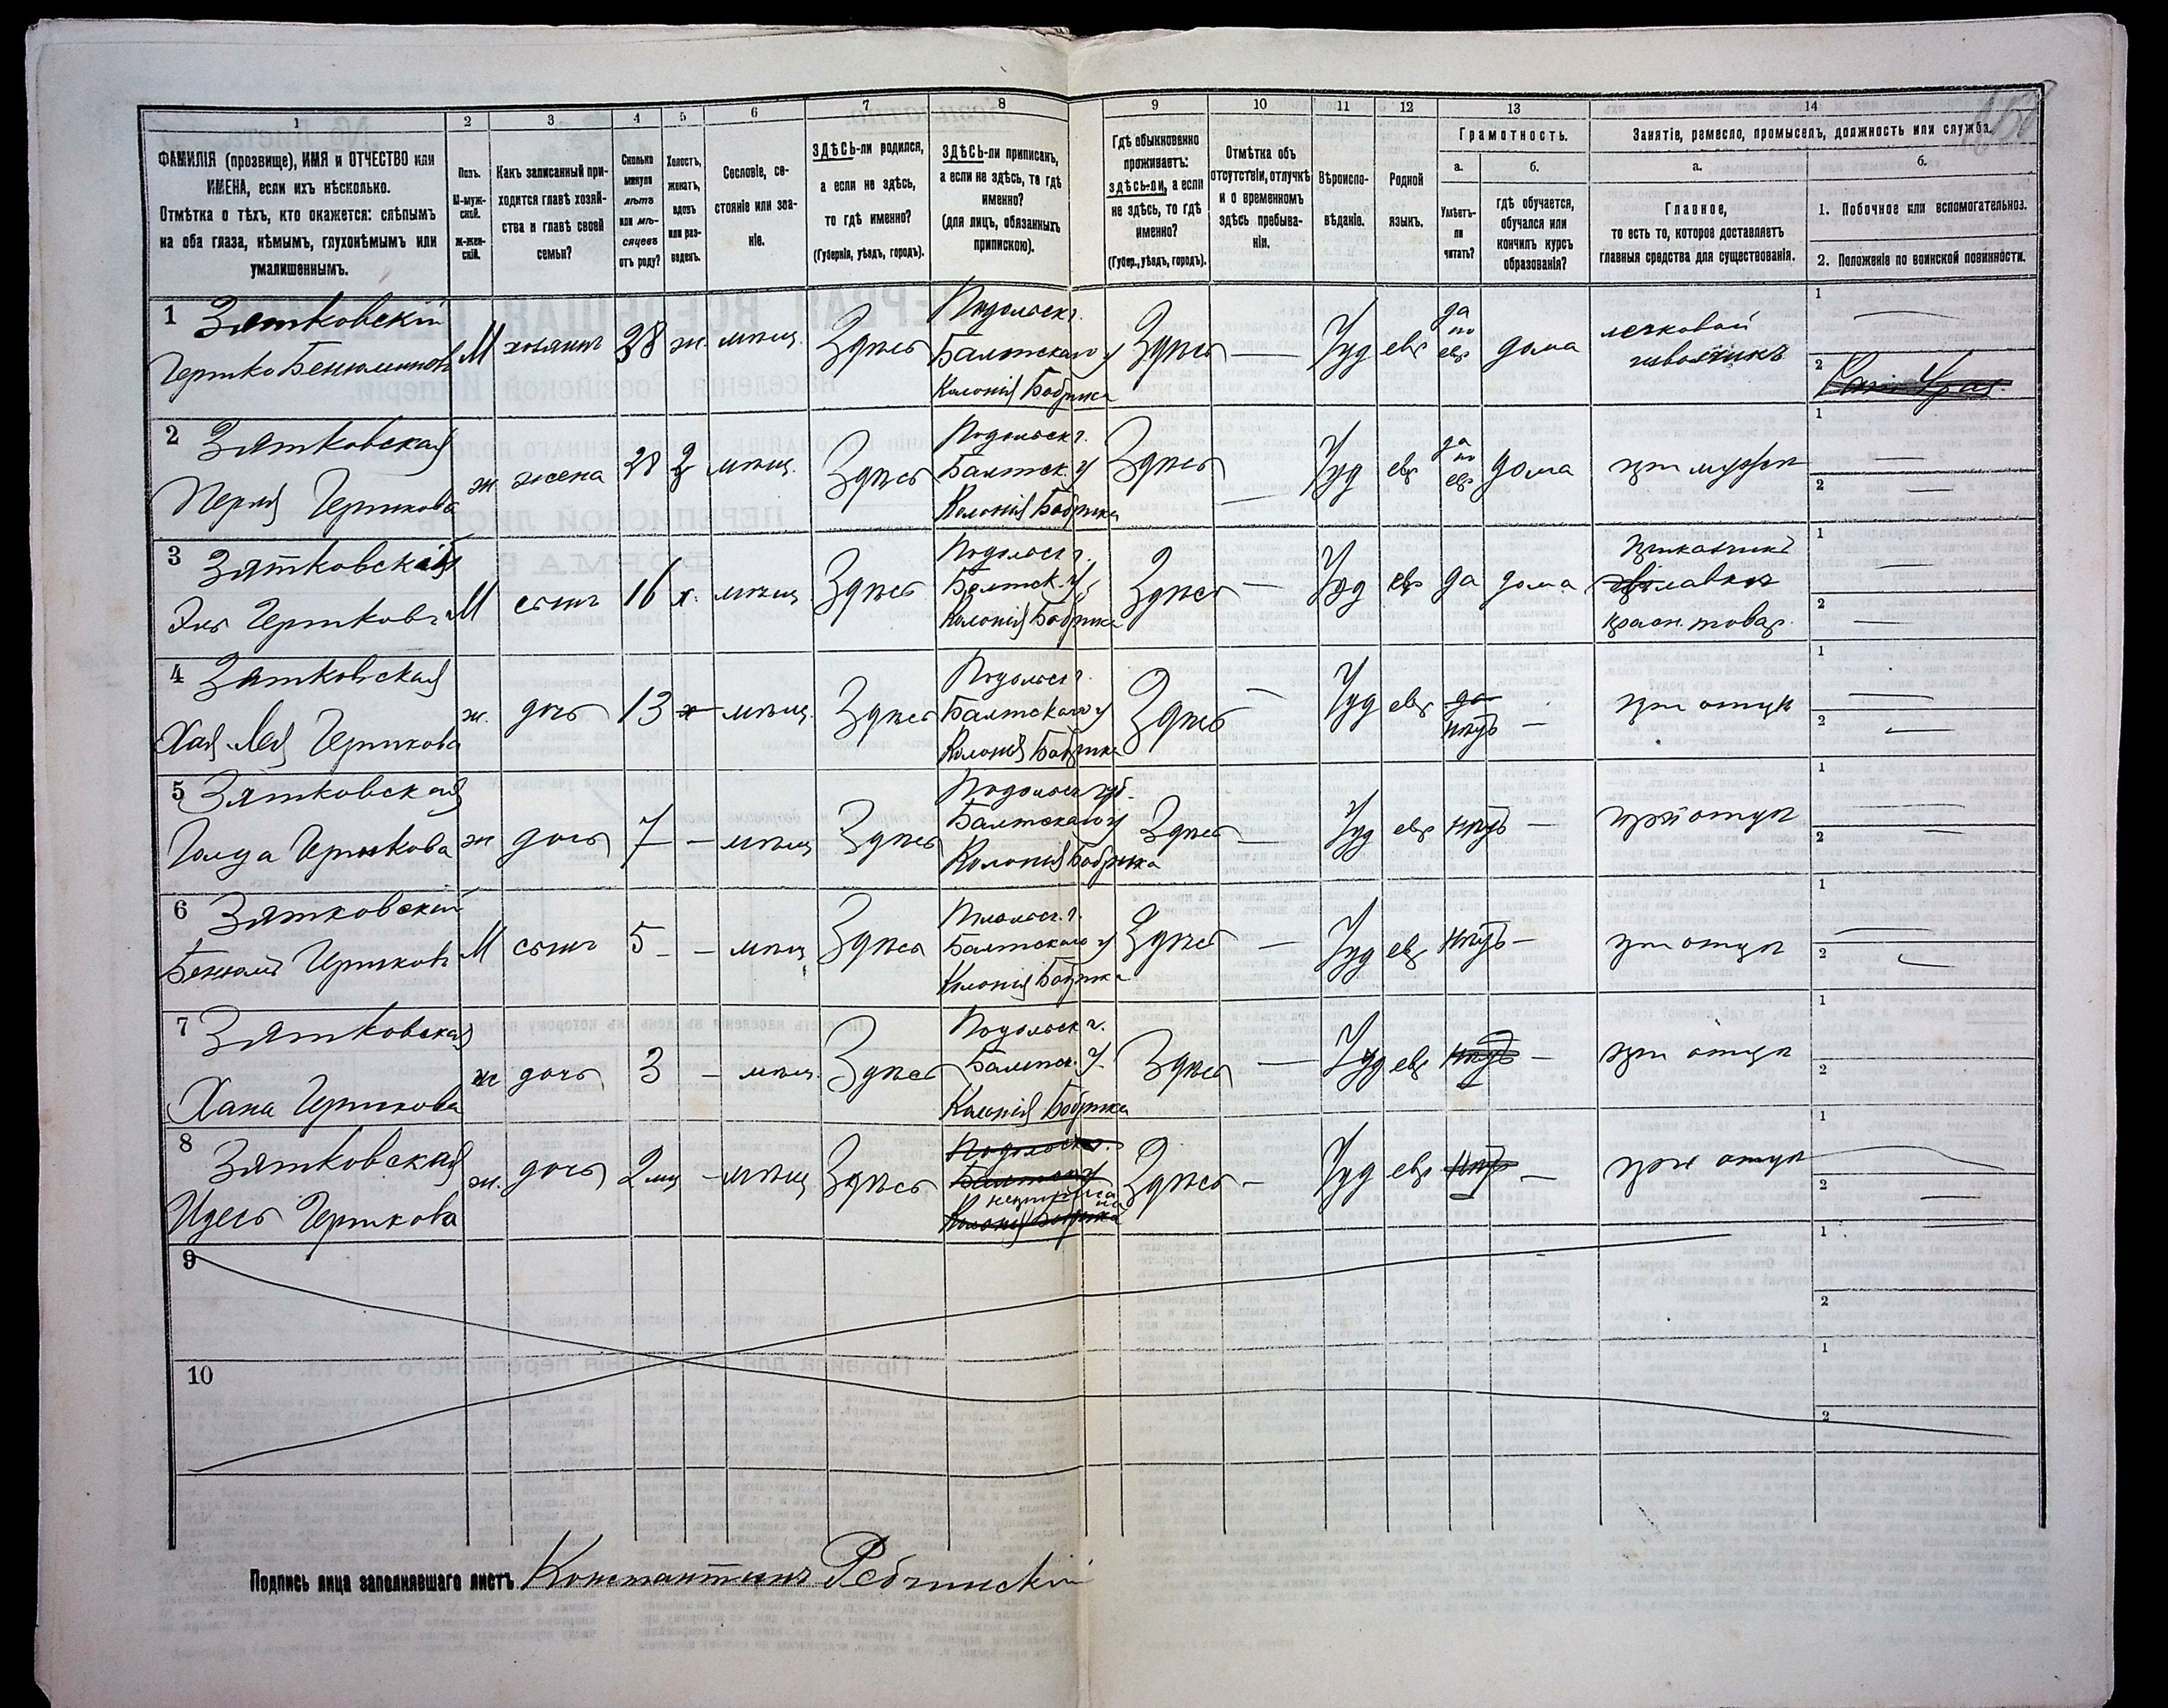 1
2
3
4
5
6
7
8
9
10
11
12
13
14
ФАМИЛІЯ (прозвище), ИМЯ и ОТЧЕСТВО или
ИМЕНА, если ихъ нѣсколько.
Отмѣтка о тѣхъ, кто окажется: слѣпымъ
на оба глаза, нѣмымъ, глухонѣмымъ или
умалишеннымъ.
Полъ.
М-муж-
ской.
ж-жен-
скій.
Какъ записанный при-
ходится главѣ хозяй-
ства и главѣ своей
семьи?
Сколько
минуло
лѣтъ
или мѣ-
сяцевъ
отъ роду?
Холостъ,
женатъ,
вдовъ
или раз-
веденъ.
Сословіе, со-
стояніе или зва-
ніе.
ЗДѢСЬ-ли родился,
а если не здѣсь,
то гдѣ именно?
(Губернія, уѣздъ, городъ).
ЗДѢСЬ-ли приписанъ,
а если не здѣсь, то гдѣ
именно?
(для лицъ, обязанныхъ
припискою).
Гдѣ обыкновенно
проживаетъ:
здѣсь-ли, а если
не здѣсь, то гдѣ
именно?
(Губер., уѣздъ, городъ).
Отмѣтка объ
отсутствіи, отлучкѣ
и о временномъ
здѣсь пребыва-
ніи.
Вѣроиспо-
вѣданіе.
Родной
языкъ.
Грамотность.
а.
Умѣетъ-
ли
читать?
б.
гдѣ обучается,
обучался или
кончилъ курсъ
образованія?
Занятіе, ремесло, промыселъ, должность или служба.
а.
Главное,
то есть то, которое доставляетъ
главныя средства для существованія.
б.
1. Побочное или вспомогательное.
2. Положеніе по воинской повинности.
1 Зятковскій
Гершко Бенюминовъ
М хозяинъ 38 ж. мѣщ. Здѣсь
Подольск г.
Балтскаго у
Колонія Бобрика
Здѣсь — Іуд евр
да
по
евр
дома
легковой
извозчикъ
1
2
2 Зятковская
Перля Гершкова
ж. жена 38 З мѣщ. Здѣсь
Подольск г.
Балтск. у
Колонія Бобрика
Здѣсь — Іуд евр
да
по
евр
дома при мужѣ
1
2
3 Зятковскій
Эль Гершковъ
М сынъ 16 х. мѣщ Здѣсь
Подольск г.
Балтск. у
Колонія Бобрика
Здѣсь — Іуд евр да дома
Прикащикъ
лавки
красн. товар.
1
2
4 Зятковская
Хая Лея Гершкова
ж. дочь 13 х мѣщ. Здѣсь
Подольск г.
Балтскаго у
Колонія Бобрика
Здѣсь — Іуд евр
да
нѣтъ — при отцѣ
1
2
5 Зятковская
Голда Гершкова
ж дочь 7 — мѣщ Здѣсь
Подольск губ.
Балтскаго у
Колонія Бобрика
Здѣсь — Іуд евр нѣтъ — при отцѣ
1
2
6 Зятковскій
Бенюмъ Гершковъ
М сынъ 5 — мѣщ Здѣсь
Подольск. г.
Балтскаго у
Колонія Бобрика
Здѣсь — Іуд евр нѣтъ — при отцѣ
1
2
7 Зятковская
Хана Гершкова
ж дочь 3 — мѣщ. Здѣсь
Подольск г.
Балтск. у
Колонія Бобрика
Здѣсь — Іуд евр нѣтъ — при отцѣ
1
2
8 Зятковская
Идесь Гершкова
ж. дочь 2 мц — мѣщ Здѣсь
Подольск г.
Балтск у
не приписана
Колонія Бобрика
Здѣсь — Іуд евр нѣтъ — при отцѣ
1
2
9
1
2
10
1
2
Подпись лица заполнявшаго листъ Константинъ